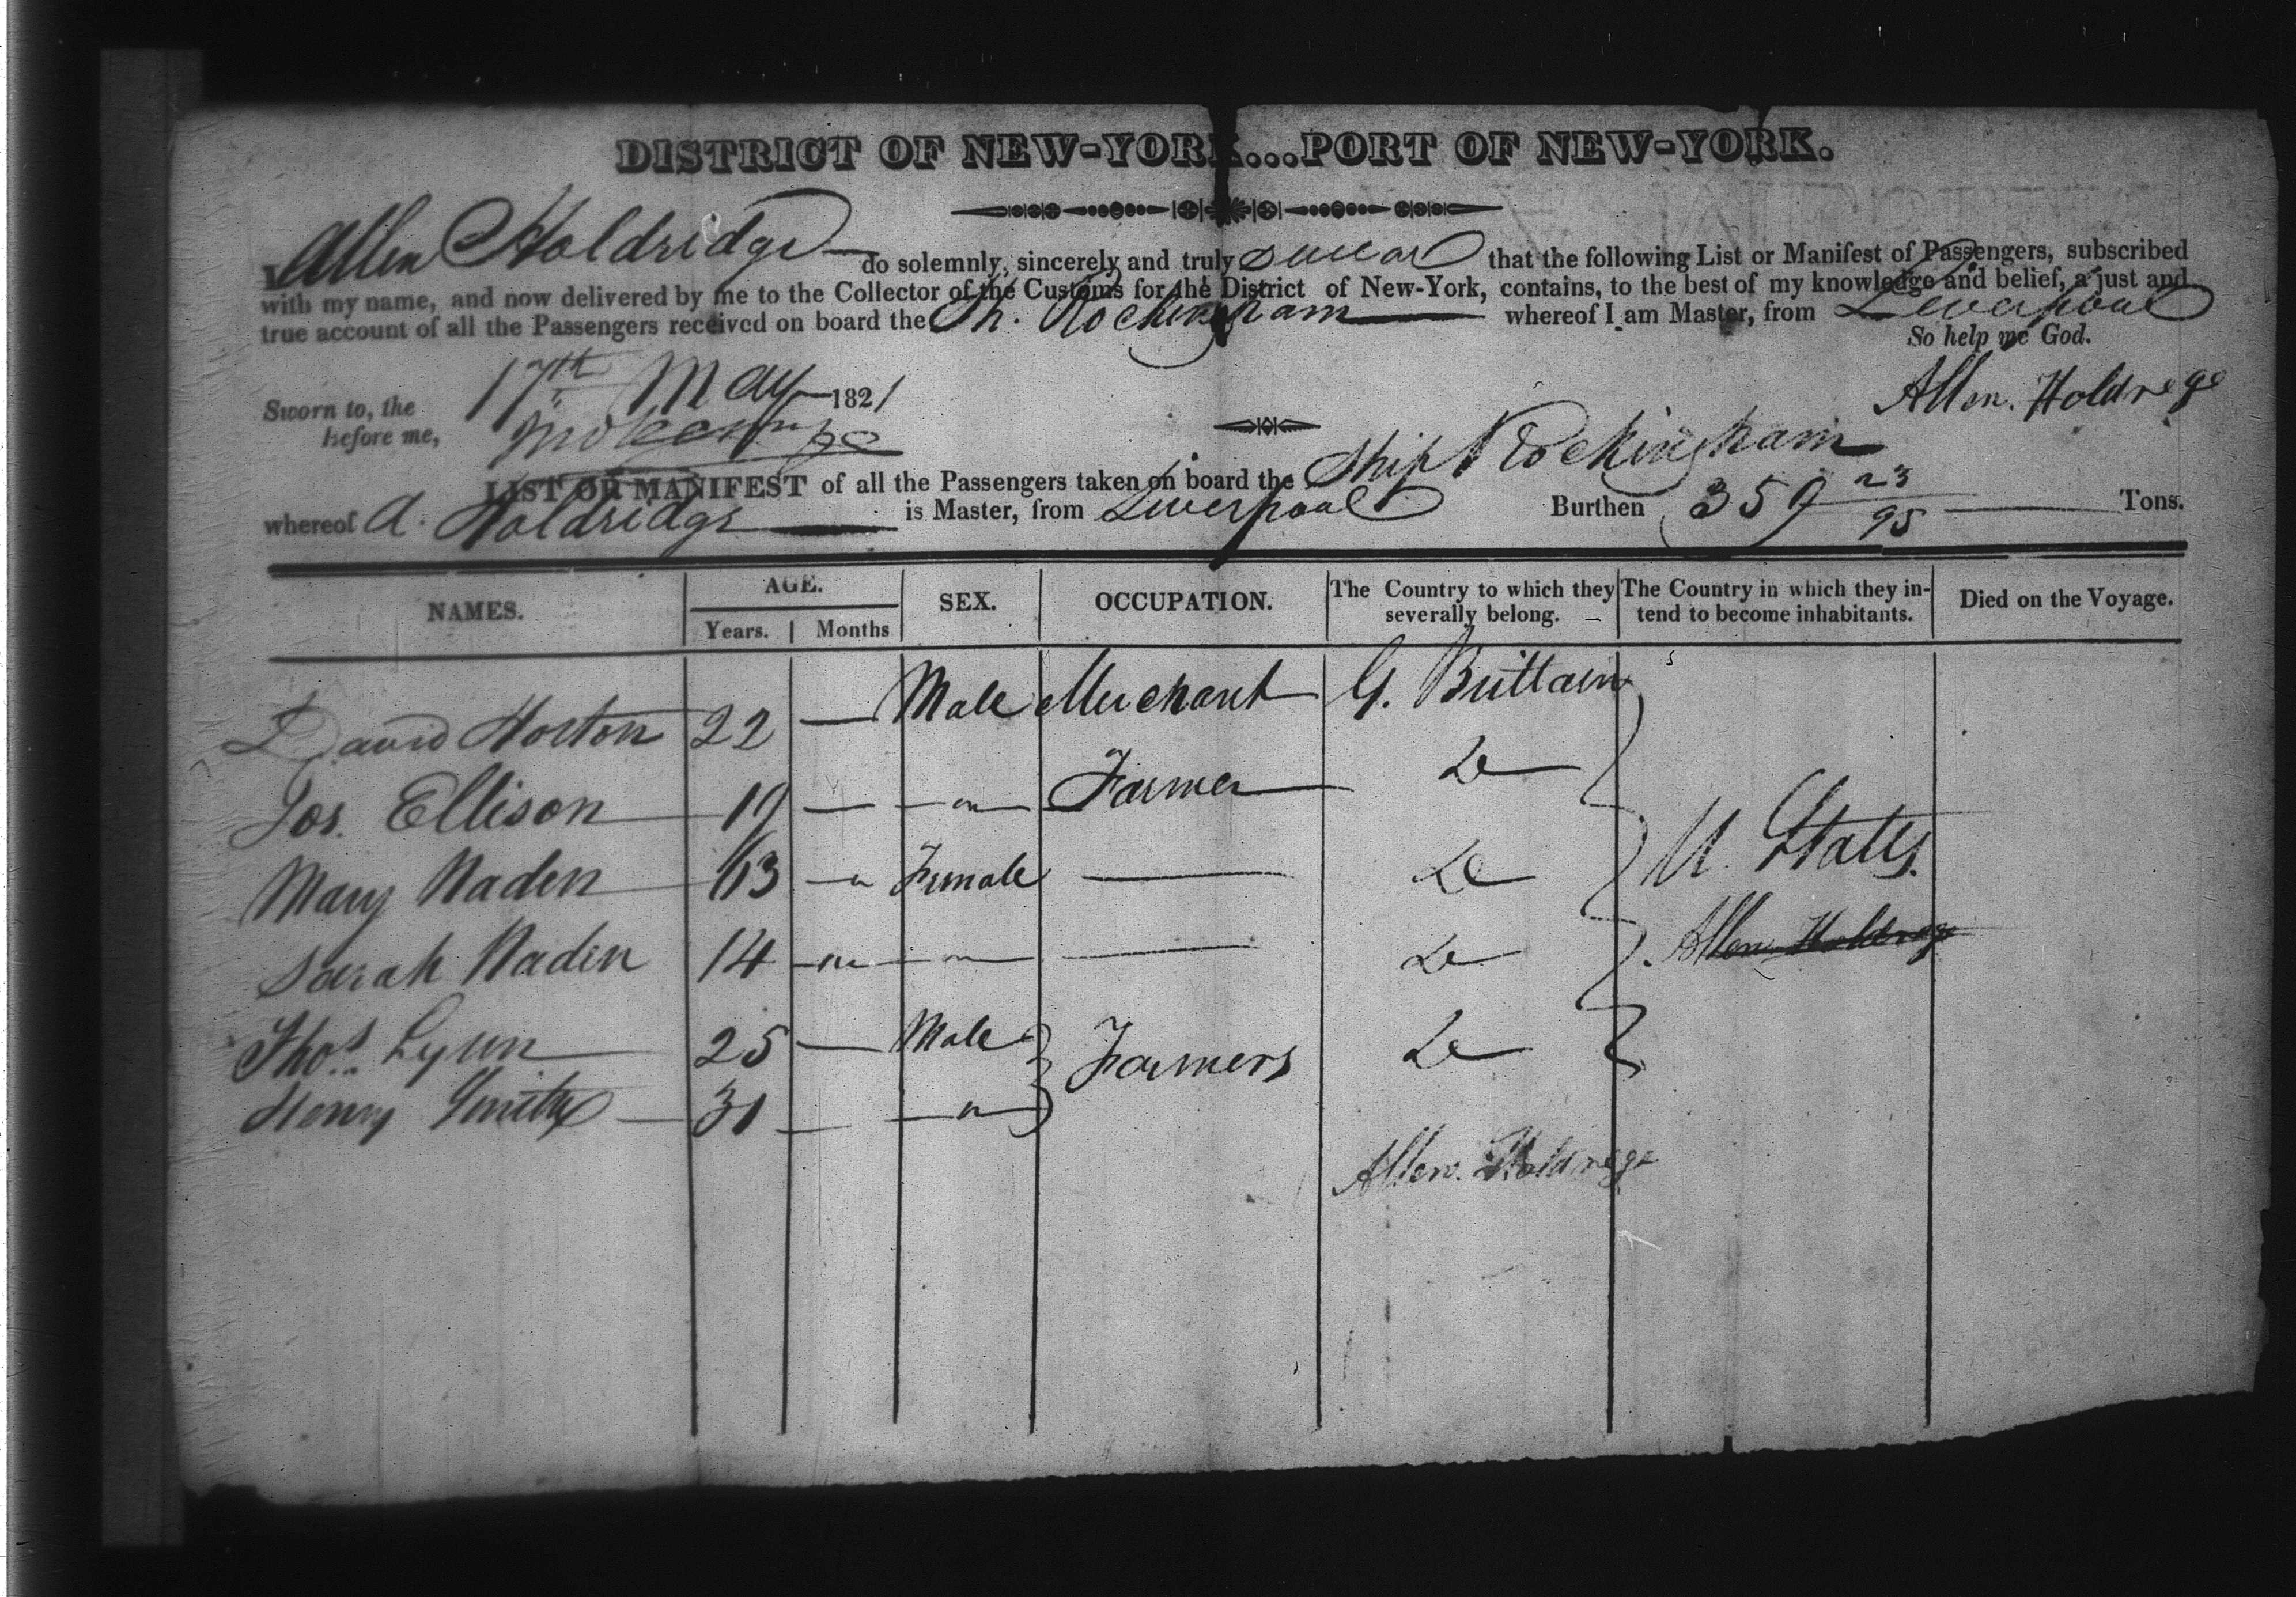 DISTRICT OF NEW-YORK...PORT OF NEW-YORK.
I Allen Holdridge do solemnly, sincerely and truly swear that the following List or Manifest of Passengers, subscribed
with my name, and now delivered by me to the Collector of the Customs for the District of New-York, contains, to the best of my knowledge and belief, a just and
true account of all the Passengers received on board the Sh. Rockingham whereof I am Master, from Liverpool
So help me God.
Sworn to, the 17th May 1821
before me,
Allen. Holdrege
LIST OR MANIFEST of all the Passengers taken on board the Ship Rockingham
whereof A. Holdridge is Master, from Liverpool Burthen 359 23/95 Tons.
NAMES. AGE. Years. Months SEX. OCCUPATION. The Country to which they severally belong. The Country in which they intend to become inhabitants. Died on the Voyage.
David Horton 22 — Male Merchant G. Brittain
Jos. Ellison 19 — — " — Farmer Do
Mary Naden 13 — " Female — Do U. States.
Sarah Naden 14 — " — " — — Do Allen Holdrege
Thos. Lynn 25 — Male Farmers Do
Henry Smith 31 — — " —
Allen. Holdrege